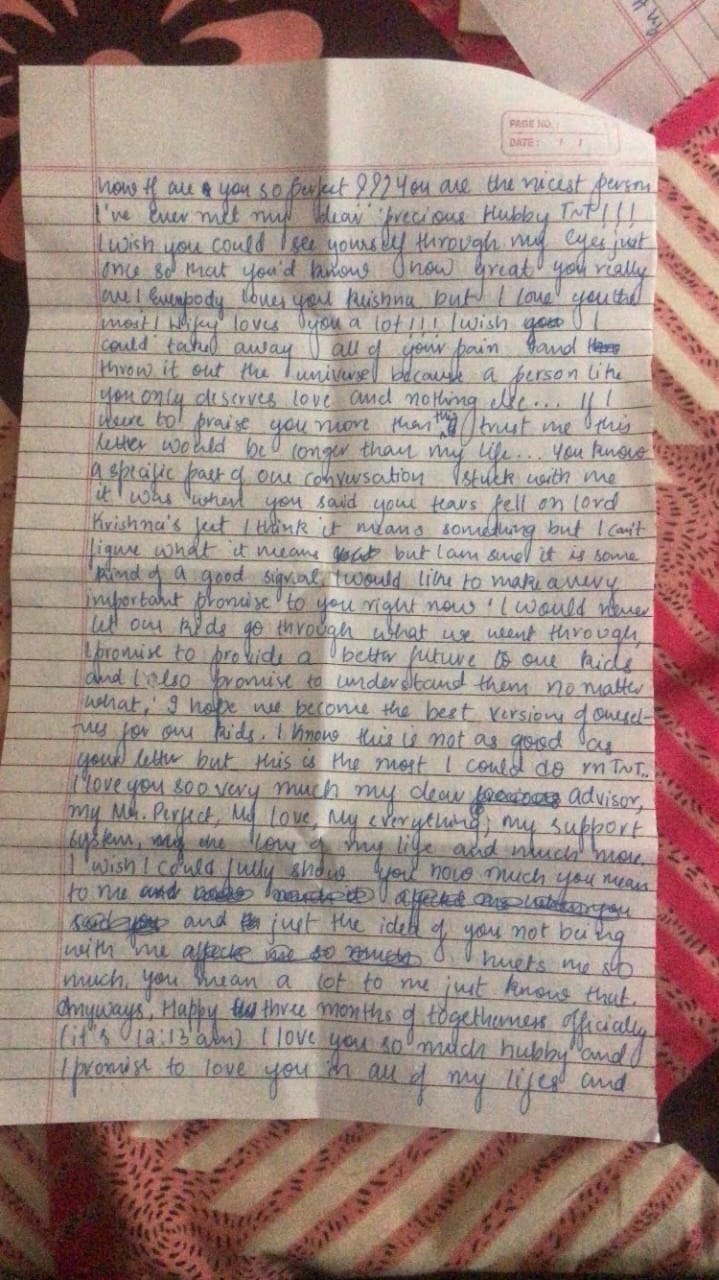 PAGE NO.
DATE: / /
how tf are you so perfect ??? You are the nicest person
I've ever met my dear precious Hubby TNT!!!
I wish you could see yourself through my eyes just
once so that you'd know how great you really
are! Everybody loves you Krishna but I love you the
most! loves you a lot!!! I wish I
could take away all of your pain and
throw it out the universe because a person like
you only deserves love and nothing else... If I
were to praise you more than this trust me this
letter would be longer than my life... You know
a specific part of our conversation stuck with me
it was when you said your tears fell on lord
Krishna's feet I think it means something but I can't
figure what it means but I am sure it is some
kind of a good signal, I would like to make a very
important promise to you right now 'I would never
let our kids go through what we went through,
I promise to provide a better future to our kids
and I also promise to understand them no matter
what,' I hope we become the best version of oursel-
ves for our kids. I know this is not as good as
your letter but this is the most I could do m TNT..
I love you soo very much my dear advisor,
my Mr. Perfect, My love, My everything, my support
system, the love of my life and much more
I wish I could fully show you how much you mean
to me
and just the idea of you not being
with me hurts me so
much, you mean a lot to me just know that.
Anyways, Happy three months of togetherness officially
(it's 12:13 a.m) I love you so much hubby and
I promise to love you in all of my lifes and